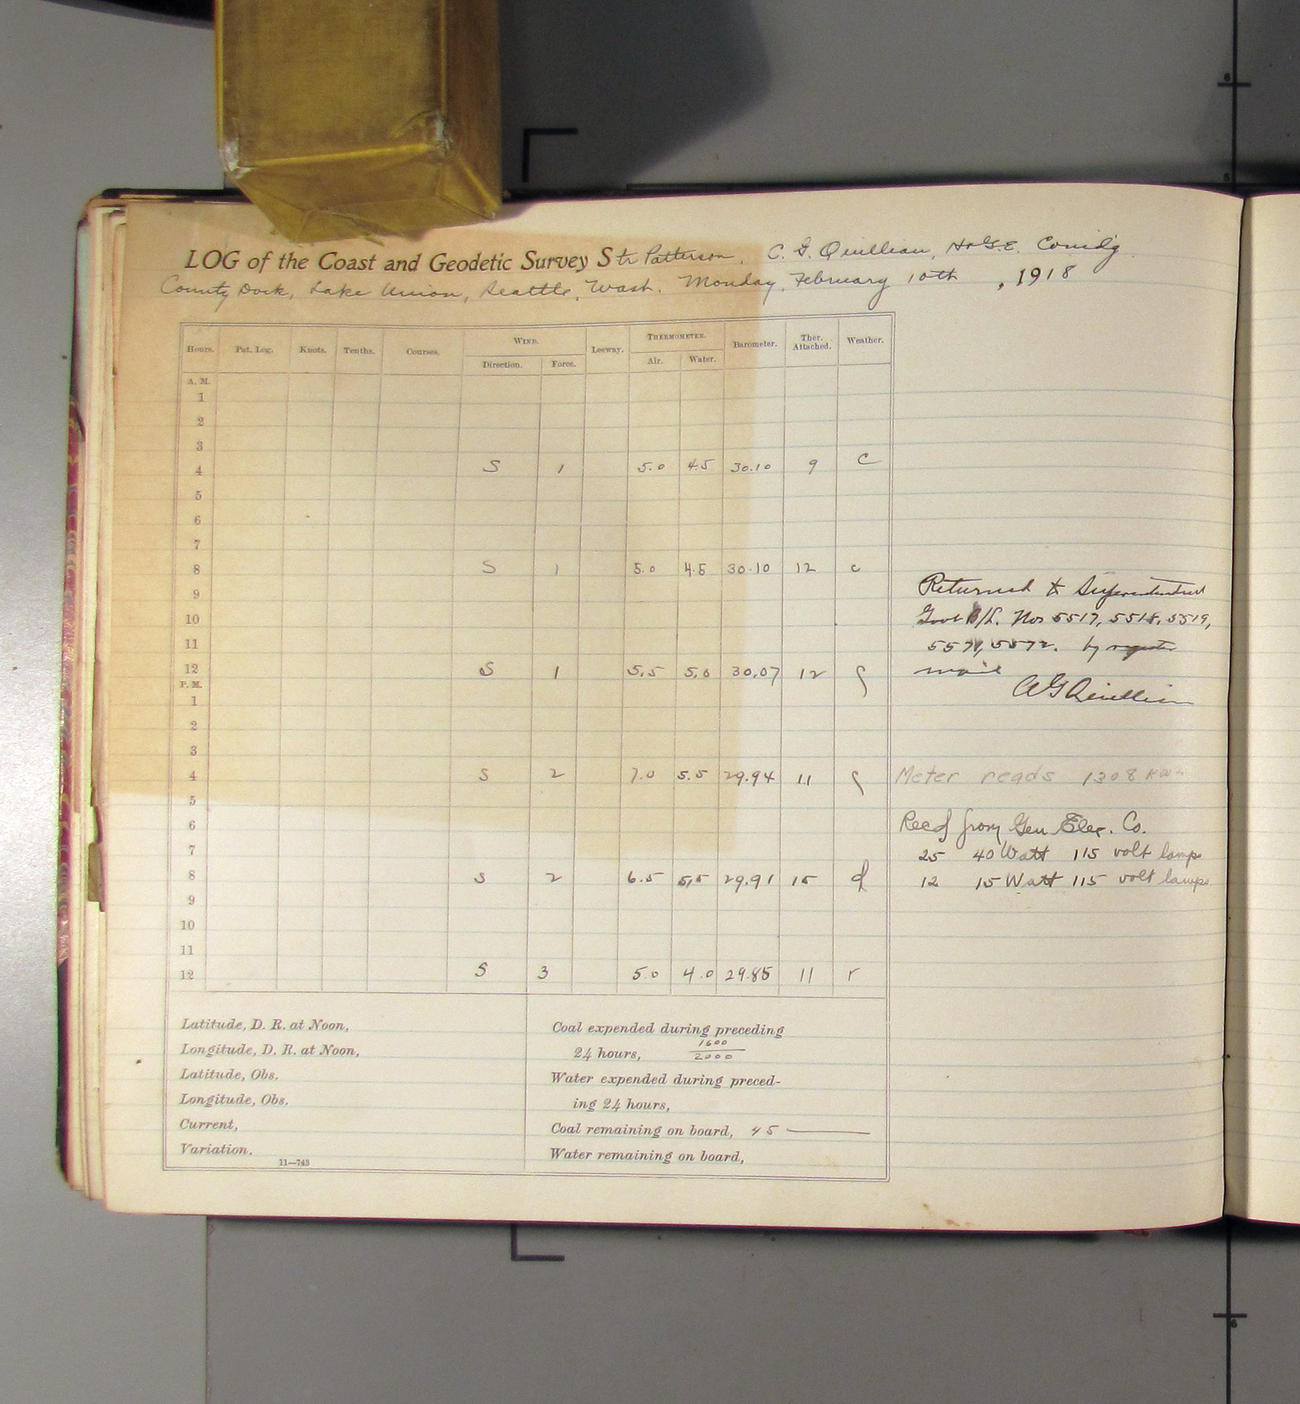 LOG of the Coast and Geodetic Survey Str Patterson, C. G. Quillian, H. & G. E. Comd'g
County Dock, Lake Union, Seattle, Wash. Monday, February 10th, 1918
Hours. Pat. Log. Knots. Tenths. Courses. WIND. Leeway. THERMOMETER. Barometer. Ther. Attached. Weather.
Direction. Force. Air. Water.
A. M.
1
2
3
4 S 1 5.0 4.5 30.10 9 c
5
6
7
8 S 1 5.0 4.5 30.10 12 c
9 Returned to Superintendent
10 Govt B/L. Nos 5517, 5518, 5519,
11 5571, 5572. by register
12 S 1 5.5 5.0 30.07 12 mail
P. M.
1 C G Quillian
2
3
4 S 2 7.0 5.5 29.94 11 Meter reads 1308 KW
5
6 Recd from Gen Elec. Co.
7 25 40 Watt 115 volt lamps
8 S 2 6.5 5.5 29.91 15 d 12 15 Watt 115 volt lamps
9
10
11
12 S 3 5.0 4.0 29.85 11 r
Latitude, D. R. at Noon,
Longitude, D. R. at Noon,
Latitude, Obs.
Longitude, Obs.
Current,
Variation.
11—743
Coal expended during preceding
24 hours, 1600/2000
Water expended during preced-
ing 24 hours,
Coal remaining on board, 45
Water remaining on board,